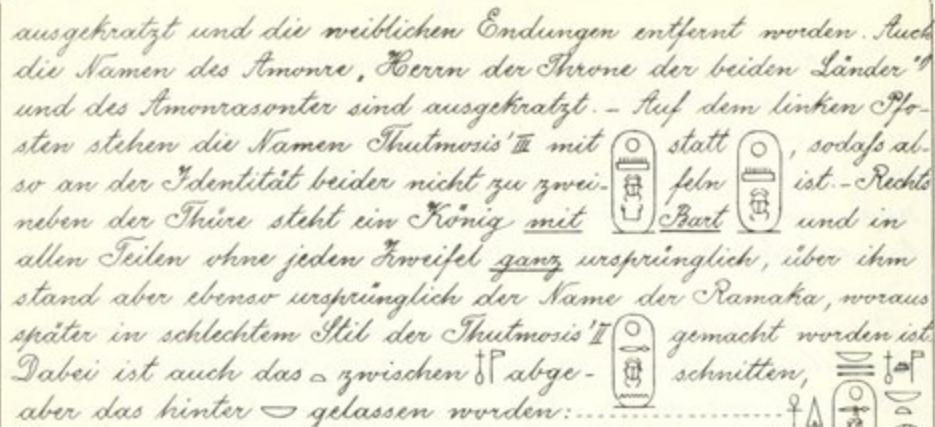 ausgekratzt und die weiblichen Endungen entfernt worden. Auch
die Namen des Amonre „Herrn der Throne der beiden Länder“
und des Amonrasonter sind ausgekratzt. – Auf dem linken Pfo-
sten stehen die Namen Thutmosis' III mit statt , sodaſs al-
so an der Identität beider nicht zu zwei- feln ist. – Rechts
neben der Thüre steht ein König mit Bart und in
allen Teilen ohne jeden Zweifel ganz ursprünglich, über ihm
stand aber ebenso ursprünglich der Name der Ramaka, woraus
später in schlechtem Stil der Thutmosis' II gemacht worden ist.
Dabei ist auch das zwischen abge- schnitten,
aber das hinter gelassen worden: